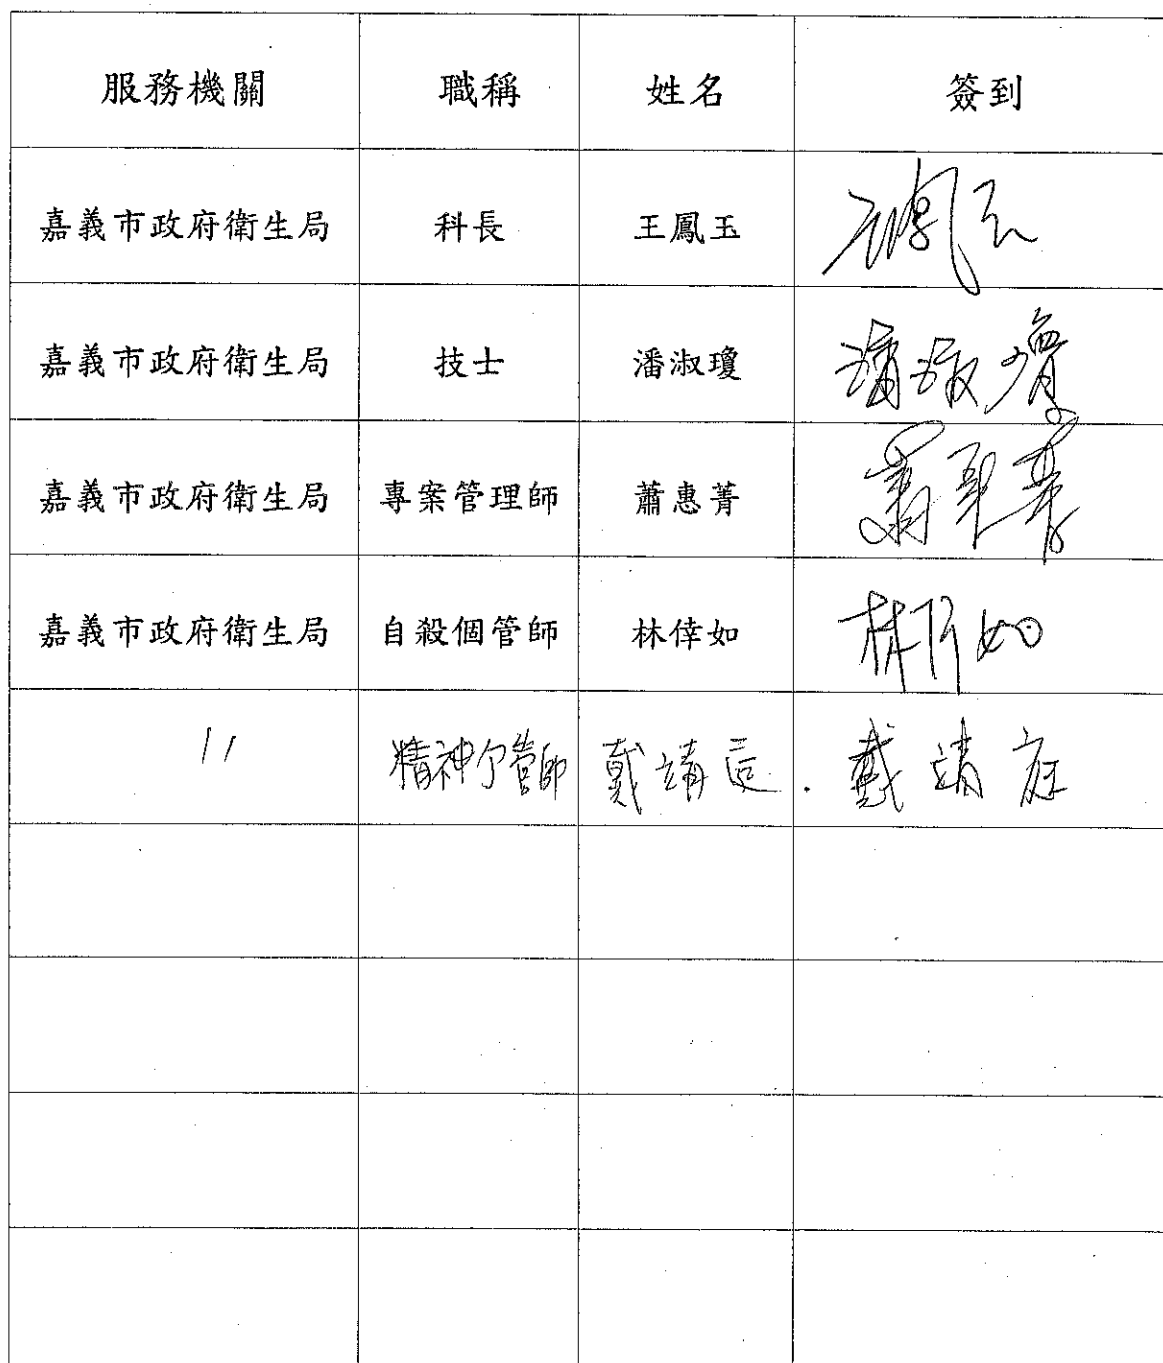 服務機關 職稱 姓名 簽到
嘉義市政府衛生局 科長 王鳳玉 王鳳玉
嘉義市政府衛生局 技士 潘淑瓊 潘淑瓊
嘉義市政府衛生局 專案管理師 蕭惠菁 蕭惠菁
嘉義市政府衛生局 自殺個管師 林倖如 林倖如
〃 精神个管師 戴靖 戴靖庭